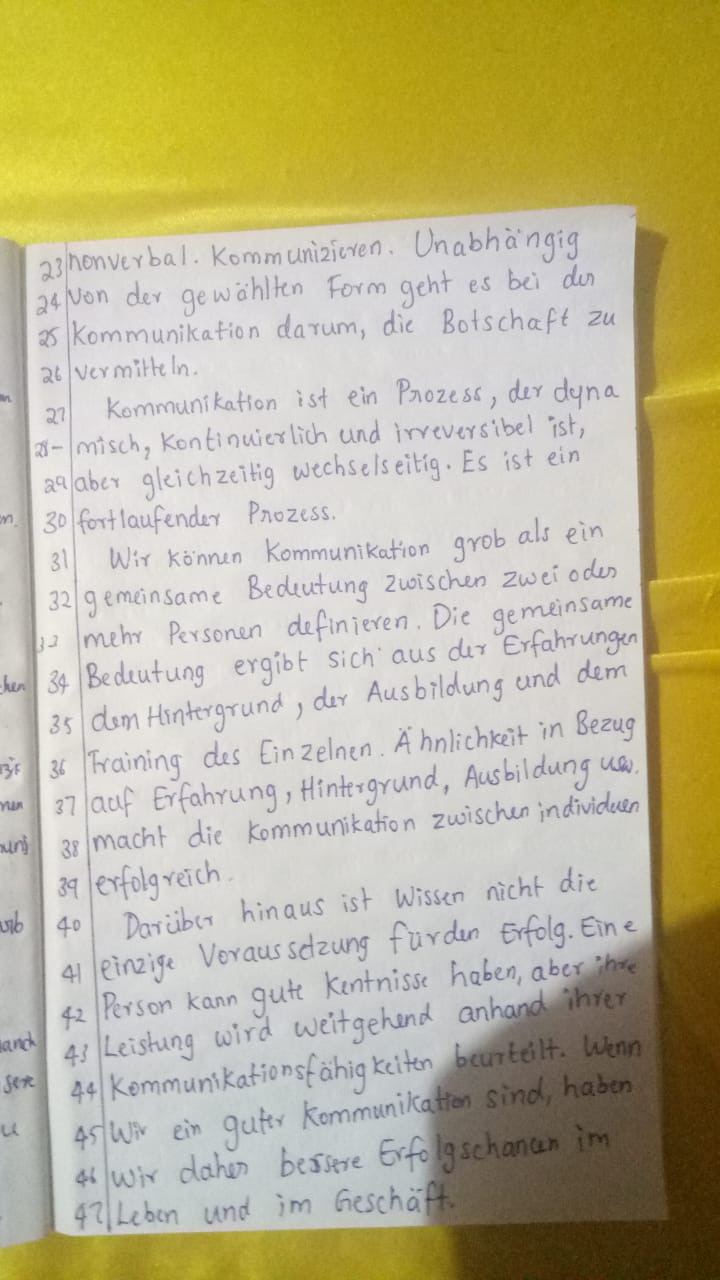 23 nonverbal. Kommunizieren. Unabhängig
24 Von der gewählten Form geht es bei der
25 Kommunikation darum, die Botschaft zu
26 vermitteln.
27 Kommunikation ist ein Prozess, der dyna
28 - misch, Kontinuierlich und irreversibel ist,
29 aber gleichzeitig wechselseitig. Es ist ein
30 fortlaufender Prozess.
31 Wir können Kommunikation grob als ein
32 gemeinsame Bedeutung zwischen zwei oder
33 mehr Personen definieren. Die gemeinsame
34 Bedeutung ergibt sich aus der Erfahrungen
35 dem Hintergrund, der Ausbildung und dem
36 Training des Einzelnen. Ähnlichkeit in Bezug
37 auf Erfahrung, Hintergrund, Ausbildung usw.
38 macht die Kommunikation zwischen individuen
39 erfolgreich.
40 Darüber hinaus ist Wissen nicht die
41 einzige Voraussetzung für den Erfolg. Eine
42 Person kann gute Kentnisse haben, aber ihre
43 Leistung wird weitgehend anhand ihrer
44 Kommunikationsfähigkeiten beurteilt. Wenn
45 Wir ein guter Kommunikation sind, haben
46 wir daher bessere Erfolgschancen im
47 Leben und im Geschäft.